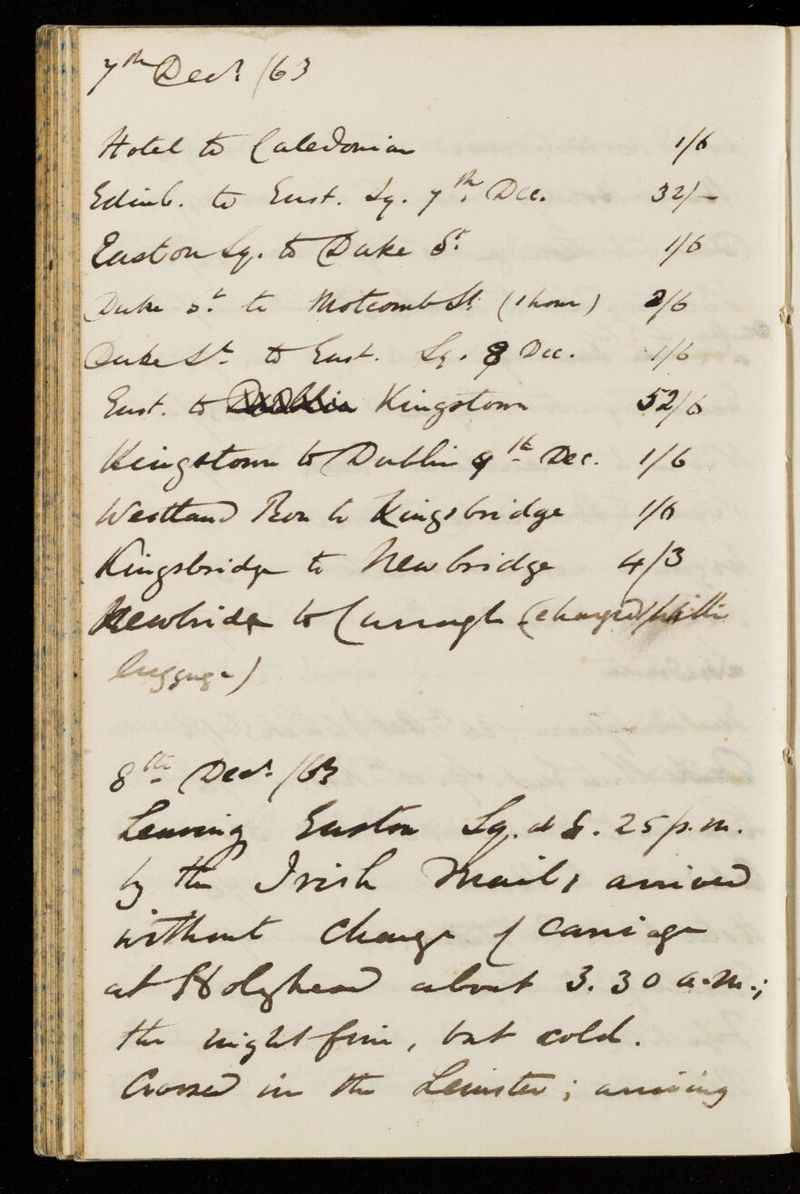 7th Decr /63
Hotel to Caledonian 1/6
Edinb. to Eust. Sq. 7th. Dec. 32/-
Euston Sq. to Duke St 1/6
Duke St to Motcomb St (1 hour) 2/6
Duke St to Eust. Sq. 8 Dec. 1/6
Eust. to Dublin Kingstown 52/6
Kingstown to Dublin 9th Dec. 1/6
Westland Row to Kingsbridge 1/6
Kingsbridge to Newbridge 4/3
Newbridge to Curragh (charged
luggage)
8th Decr /63
Leaving Euston Sq. at 8.25 p.m.
by the Irish Mail, arrived
without change of carriage
at Holyhead about 3.30 a.m.;
the night fine, but cold.
Crossed in the Leinster; arriving